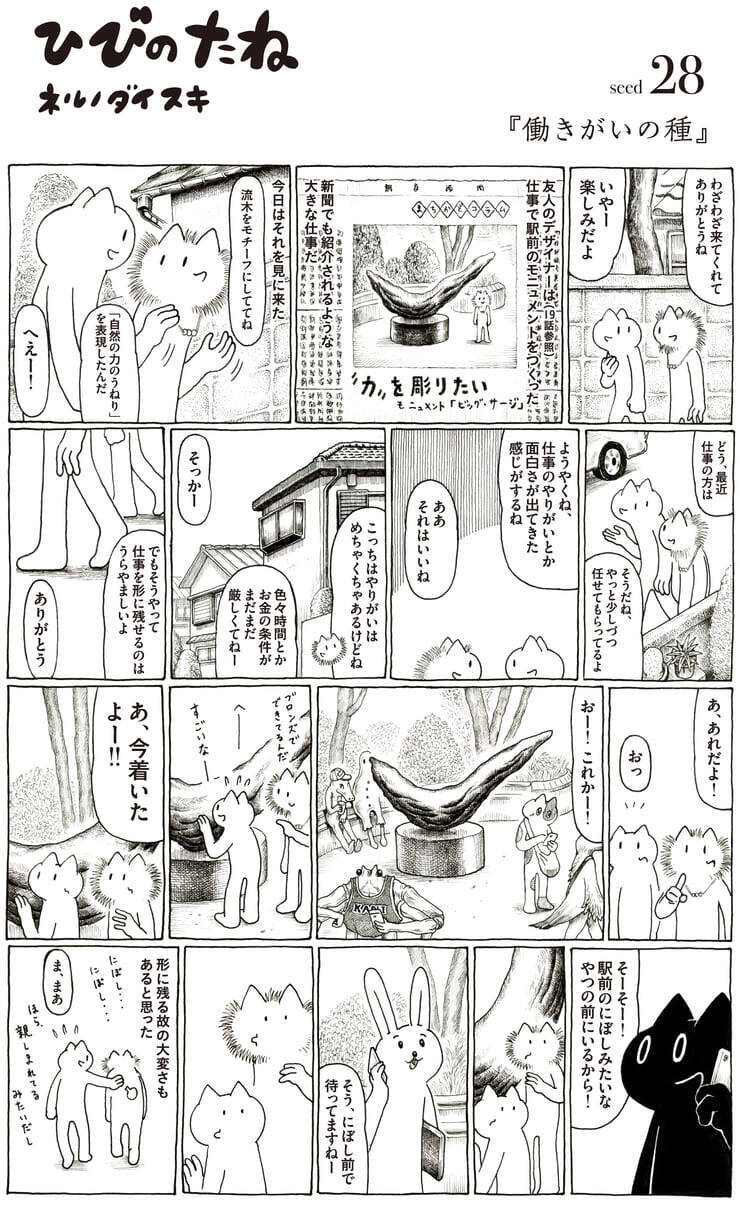 ひびのたね
ネルノダイスキ
seed 28
『働きがいの種』
わざわざ来てくれて
ありがとうね
いやー
楽しみだよ
友人のデザイナーは(19話参照)
仕事で駅前のモニュメントをつくった
まちかどコラム
"力"を彫りたい
モニュメント「ビッグ・サージ」
新聞でも紹介されるような
大きな仕事だ
今日はそれを見に来た
流木をモチーフにしててね
「自然の力のうねり」
を表現したんだ
へえー!
どう、最近
仕事の方は
そうだね、
やっと少しづつ
任せてもらってるよ
ようやくね、
仕事のやりがいとか
面白さが出てきた
感じがするね
ああ
それはいいね
こっちはやりがいは
めちゃくちゃあるけどね
色々時間とか
お金の条件が
まだまだ
厳しくてねー
そっかー
でもそうやって
仕事を形に残せるのは
うらやましいよ
ありがとう
あ、あれだよ!
おっ
おー!これかー!
ブロンズで
できてるんだ
へー
すごいなー
あ、今着いた
よー!!
そーそー!!
駅前のにぼしみたいな
やつの前にいるから!
そう、にぼし前で
待ってますねー
形に残る故の大変さも
あると思った
にぼし…
にぼし…
ま、まあ
ほら、
親しまれてる
みたいだし